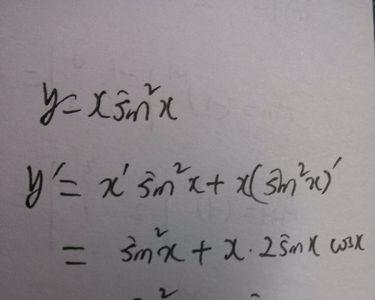 y = x sin²x
y′ = x′ sin²x + x(sin²x)′
= sin²x + x · 2sinx cosx